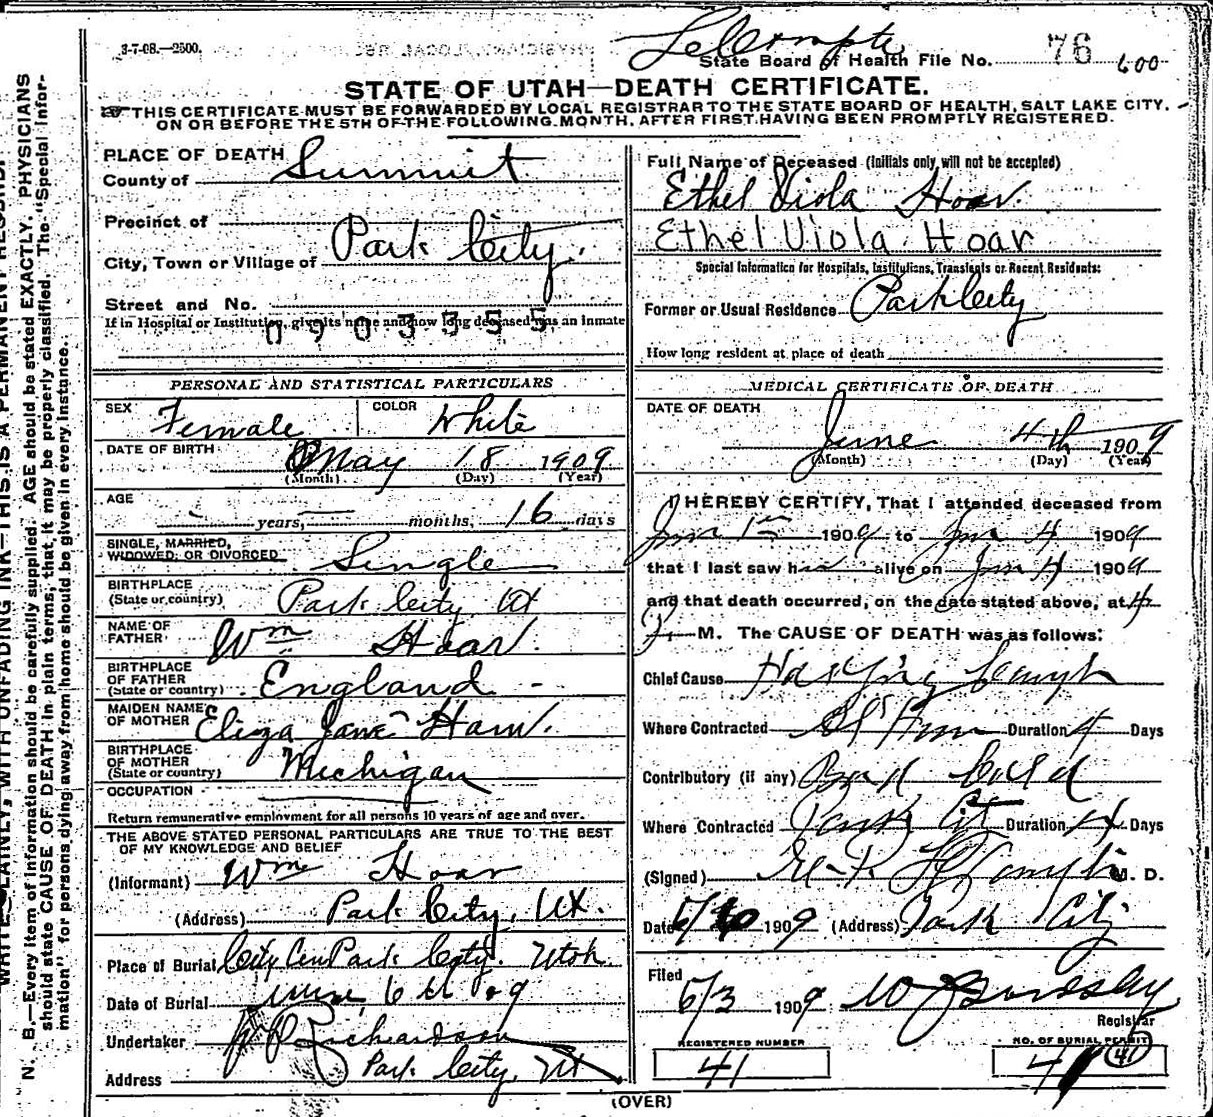 3-7-08.—2500.
LeCompte
State Board of Health File No. 76 600
STATE OF UTAH—DEATH CERTIFICATE.
THIS CERTIFICATE MUST BE FORWARDED BY LOCAL REGISTRAR TO THE STATE BOARD OF HEALTH, SALT LAKE CITY,
ON OR BEFORE THE 5TH OF THE FOLLOWING MONTH, AFTER FIRST HAVING BEEN PROMPTLY REGISTERED.
N. B.—Every item of information should be carefully supplied. AGE should be stated EXACTLY. PHYSICIANS
should state CAUSE OF DEATH in plain terms, that it may be properly classified. The "Special Infor-
mation" for persons dying away from home should be given in every instance.
PLACE OF DEATH
County of Summit
Precinct of
Park City.
City, Town or Village of
Street and No.
If in Hospital or Institution, give its name and how long deceased was an inmate
0903355
PERSONAL AND STATISTICAL PARTICULARS
SEX Female
COLOR White
DATE OF BIRTH May 18 1909
(Month) (Day) (Year)
AGE
— years, — months, 16 days
SINGLE, MARRIED,
WIDOWED, OR DIVORCED Single
BIRTHPLACE
(State or country) Park City Ut
NAME OF
FATHER Wm Hoar.
BIRTHPLACE
OF FATHER
(State or country) England -
MAIDEN NAME
OF MOTHER Eliza Jane
BIRTHPLACE
OF MOTHER
(State or country) Michigan
OCCUPATION
Return remunerative employment for all persons 10 years of age and over.
THE ABOVE STATED PERSONAL PARTICULARS ARE TRUE TO THE BEST
OF MY KNOWLEDGE AND BELIEF
(Informant) Wm Hoar
(Address) Park City, Ut.
Place of Burial City Cem Park City. Utah.
Date of Burial June 6th 09
Undertaker Richardson
Address Park City, Ut
Full Name of Deceased (Initials only will not be accepted)
Ethel Viola Hoar.
Ethel Viola Hoar
Special Information for Hospitals, Institutions, Transients or Recent Residents:
Former or Usual Residence Park City
How long resident at place of death
MEDICAL CERTIFICATE OF DEATH
DATE OF DEATH
June 4th 1909
(Month) (Day) (Year)
I HEREBY CERTIFY, That I attended deceased from
Jun 1st 1909 to Jun 4 1909
that I last saw h alive on Jun 4 1909
and that death occurred, on the date stated above, at 4
M. The CAUSE OF DEATH was as follows:
Chief Cause
Where Contracted Duration 4 Days
Contributory (if any) Bad Cold
Where Contracted Park City Duration Days
(Signed) M. D.
Date 1909 (Address) Park City
Filed
6/3 1909
Registrar
REGISTERED NUMBER
41
NO. OF BURIAL PERMIT
41
(OVER)